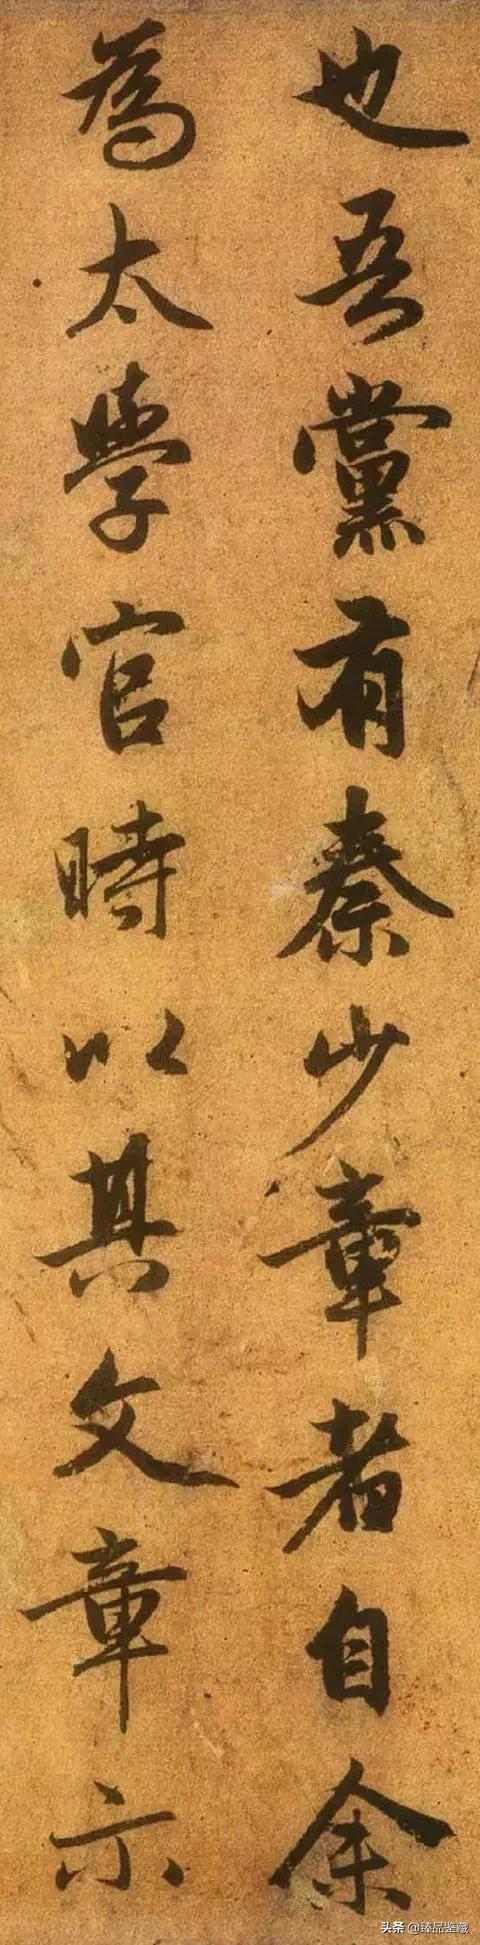 也吾黨有秦少章者自余
為太學官時以其文章示
头条 @臻品鉴藏